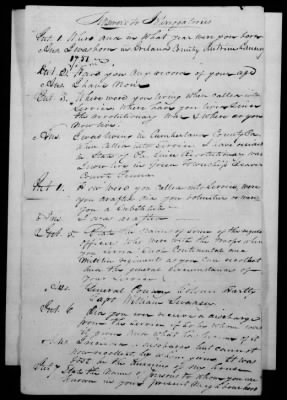 Answers to Interogatories
Int. 1. Where and in what year were you born
Ans I was born in Ireland County Antrim
1751
Int. 2. Have you any record of your age
Ans I have None
Int. 3. Where were you living when called into
Service Where have you lived since
the revolutionary War & where do you
Now live
Ans I was living in Cumberland County Pa
when called into Service I have
in State of Pa since the revolutionary war
now live in Township Beaver
County Penna
Int. 4. How were you called into Service were
you drafted did you volunteer or were
you a Substitute
Ans I was drafted
Int. 5. State the names of some of the regular
officers who were with the troops when
you served Such Continental and
Militia regiments as you can recollect
and the general circumstances of
your Service
Ans General Colonel
Capt William
Int. 6 Did you ever receive a discharge
from the Service if so by whom was
it given and what has become of it
Ans I received a discharge but cannot
now recollect by whom given It was
lost in the burning of my house
Int. 7 State the names of persons to whom you are
known in your present Neighbourhood